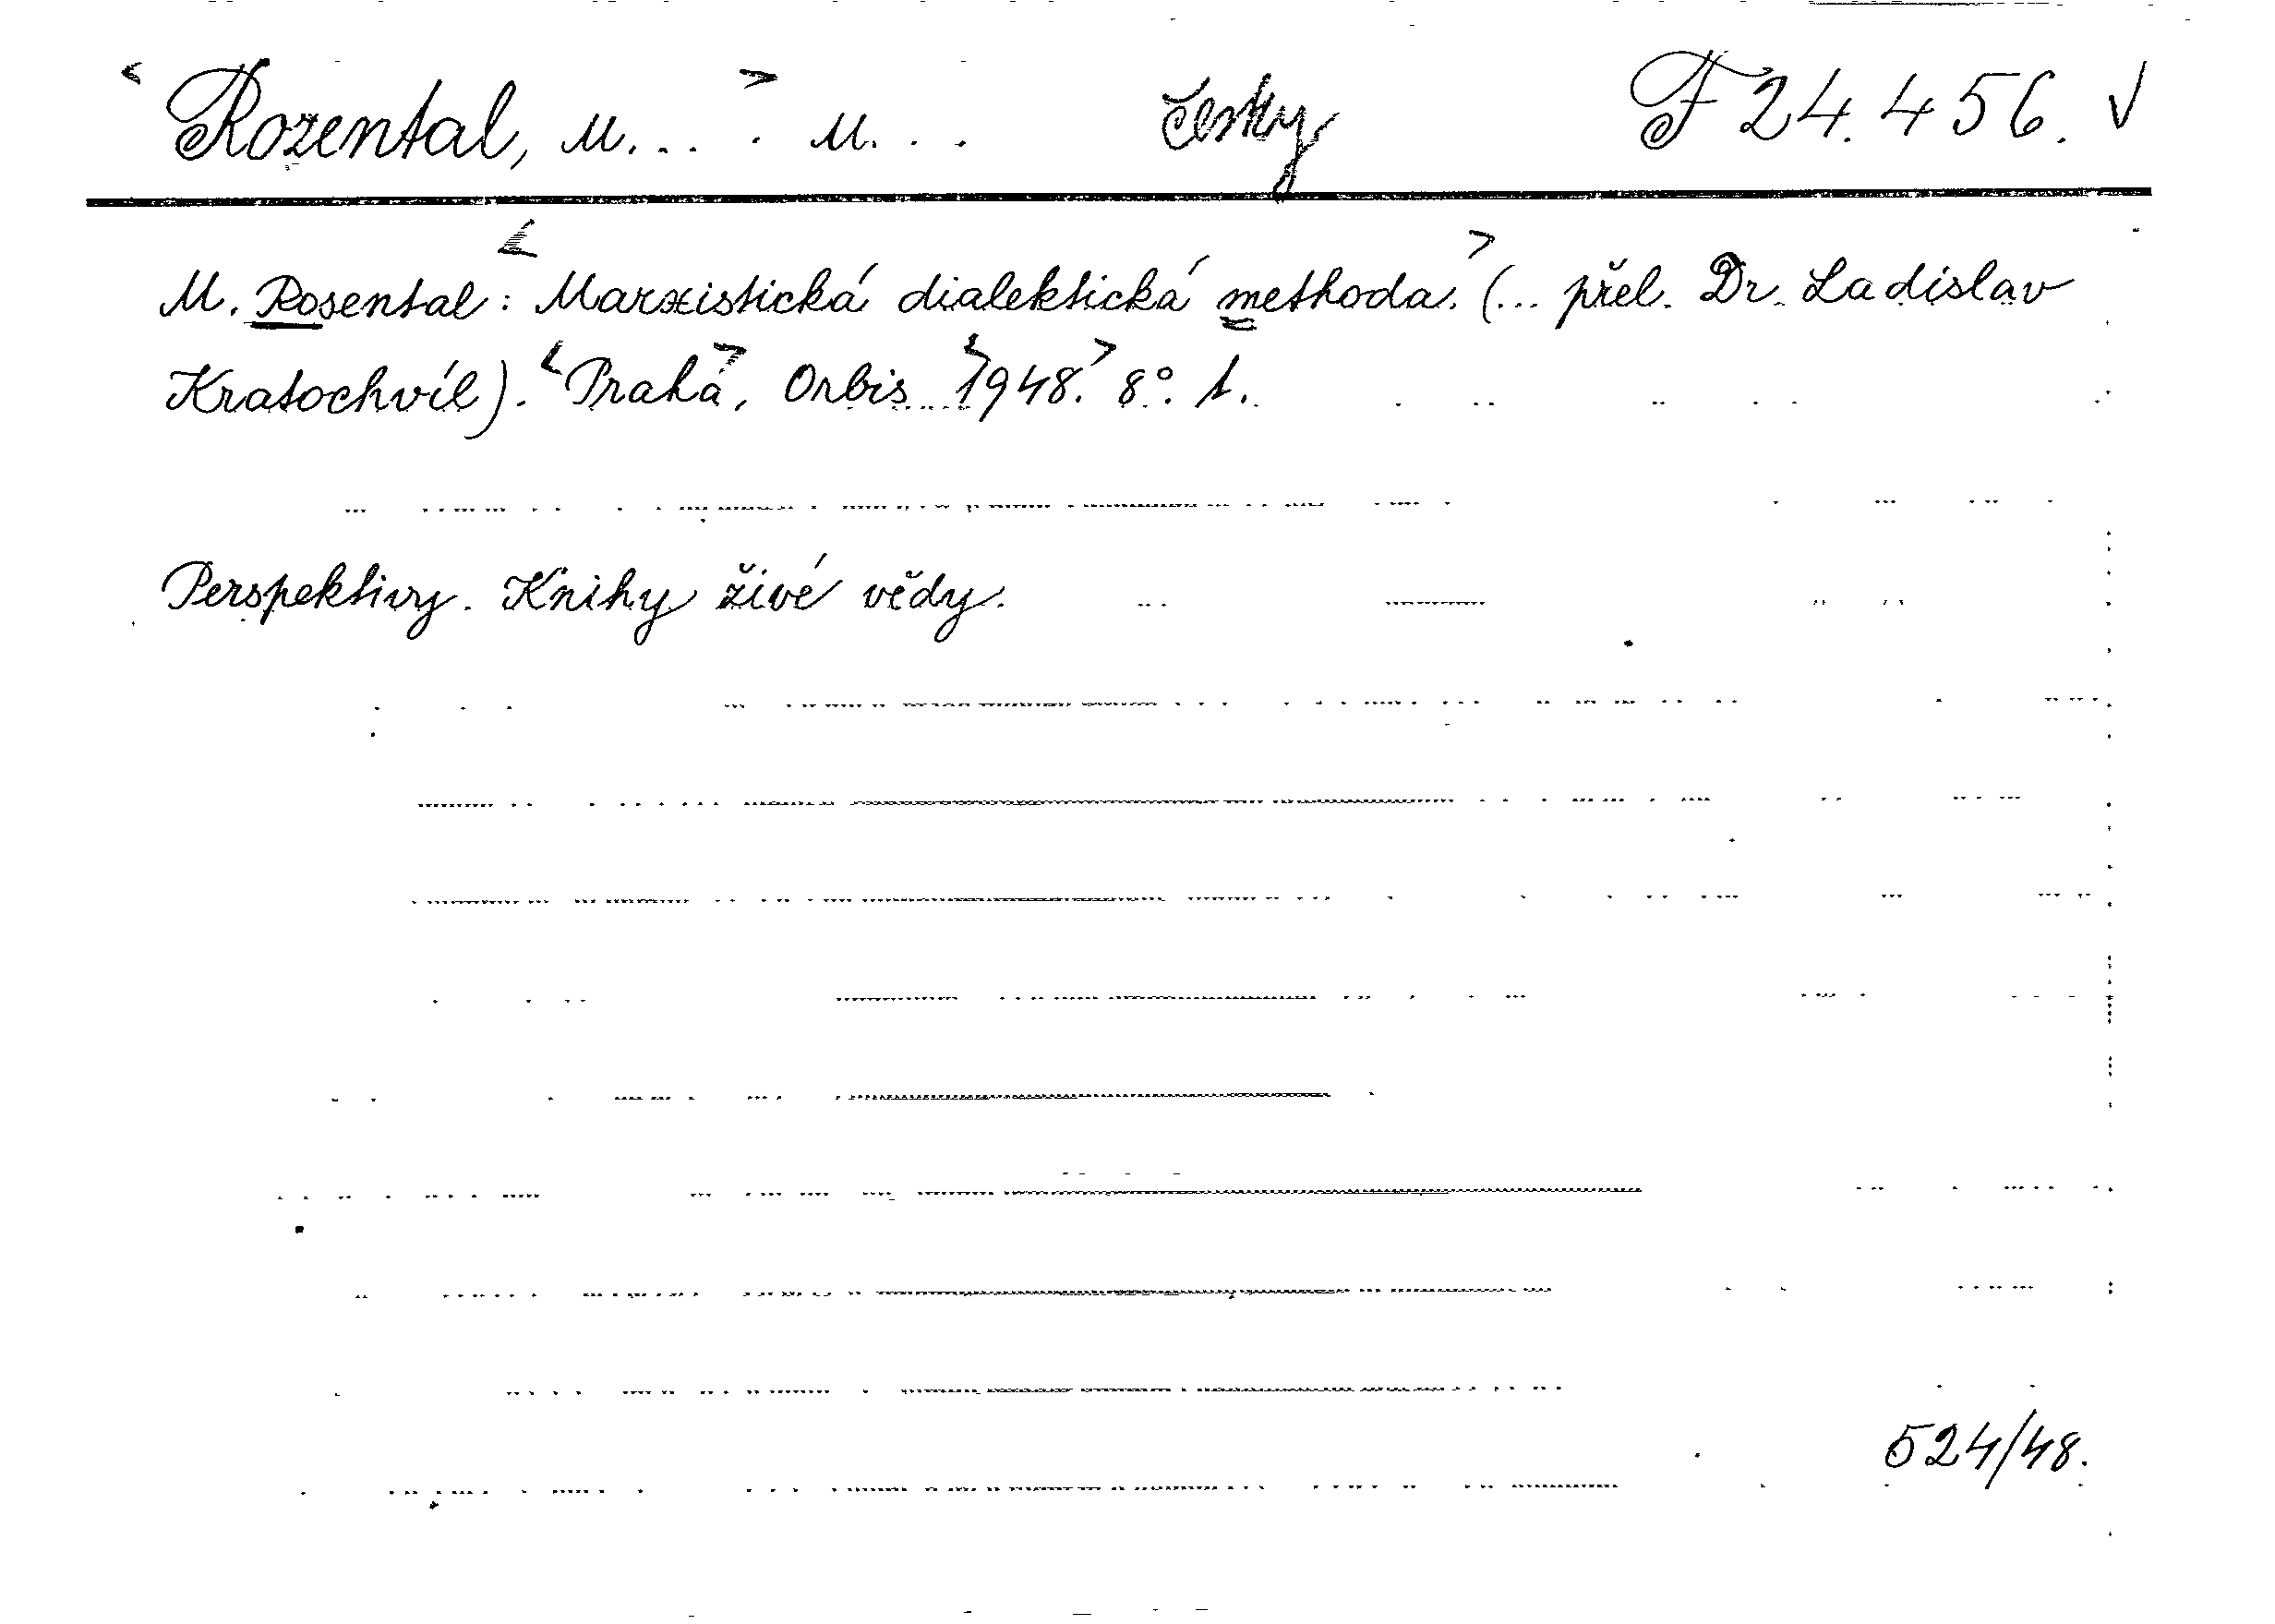 < Rozental, M... > . M... česky F 24.456. √
M. Rosental: < Marxistická dialektická methoda. > (... přel. Dr. Ladislav
Kratochvíl). < Praha >, Orbis < 1948. > 8°. 1.
Perspektivy. Knihy živé vědy.
524/48.